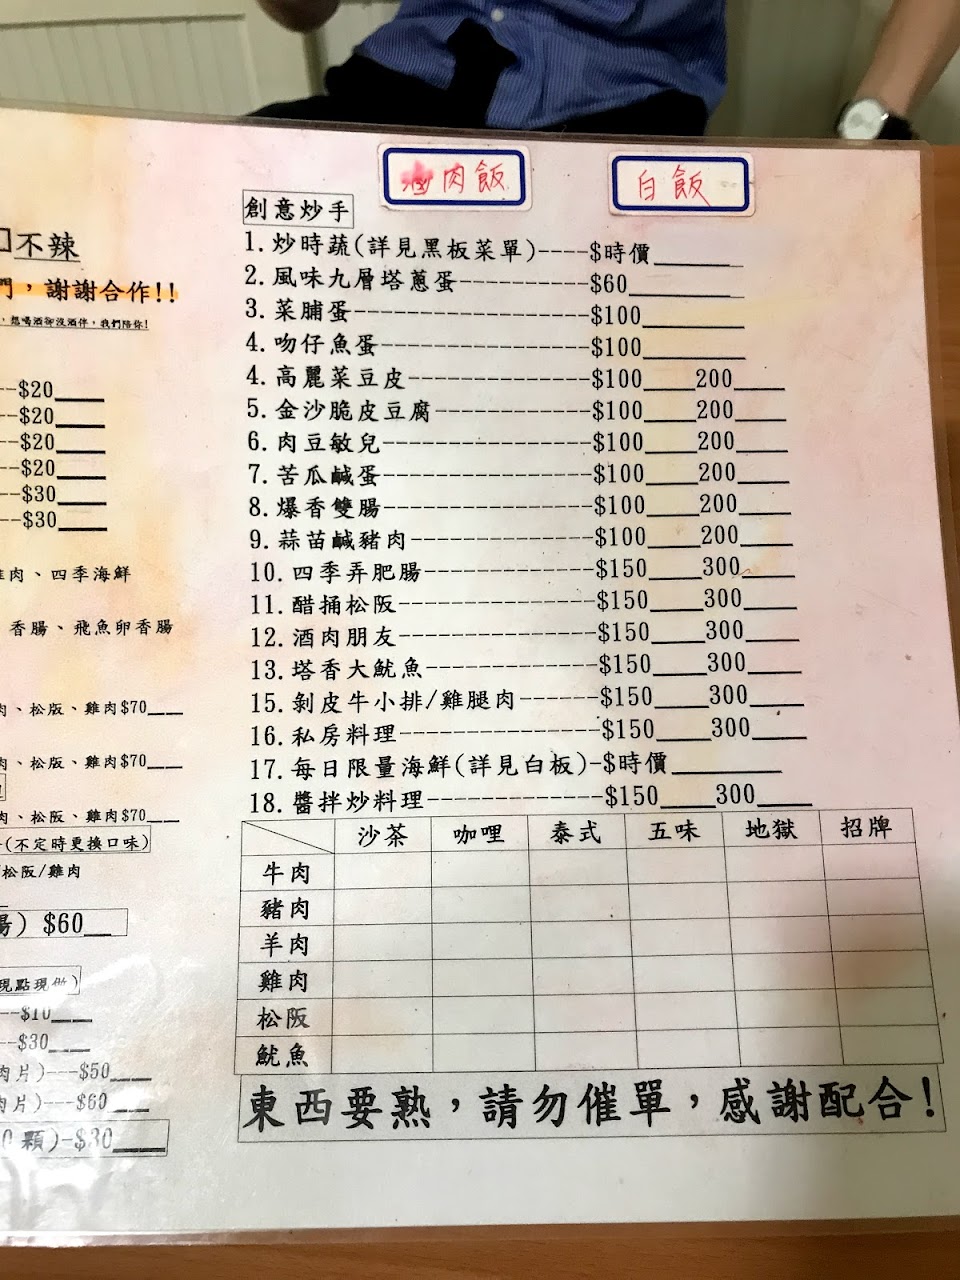 滷肉飯
白飯
不辣
，謝謝合作!!
，想喝酒卻沒酒伴，我們陪你!
--$20____
--$20____
--$20____
--$20____
--$30____
--$30____
肉、四季海鮮
香腸、飛魚卵香腸
肉、松阪、雞肉$70____
肉、松阪、雞肉$70____
肉、松阪、雞肉$70____
(不定時更換口味)
松阪/雞肉
) $60__
現點現做)
--$10____
--$30____
肉片)---$50____
肉片)---$60____
0顆)-$30____
創意炒手
1.炒時蔬(詳見黑板菜單)----$時價________
2.風味九層塔蔥蛋----------$60________
3.菜脯蛋------------------$100________
4.吻仔魚蛋----------------$100________
4.高麗菜豆皮--------------$100____200____
5.金沙脆皮豆腐------------$100____200____
6.肉豆敏兒----------------$100____200____
7.苦瓜鹹蛋----------------$100____200____
8.爆香雙腸----------------$100____200____
9.蒜苗鹹豬肉--------------$100____200____
10.四季弄肥腸-------------$150____300____
11.醋捅松阪---------------$150____300____
12.酒肉朋友---------------$150____300____
13.塔香大魷魚-------------$150____300____
15.剝皮牛小排/雞腿肉------$150____300____
16.私房料理---------------$150____300____
17.每日限量海鮮(詳見白板)-$時價________
18.醬拌炒料理-------------$150____300____
沙茶 咖哩 泰式 五味 地獄 招牌
牛肉
豬肉
羊肉
雞肉
松阪
魷魚
東西要熟，請勿催單，感謝配合!